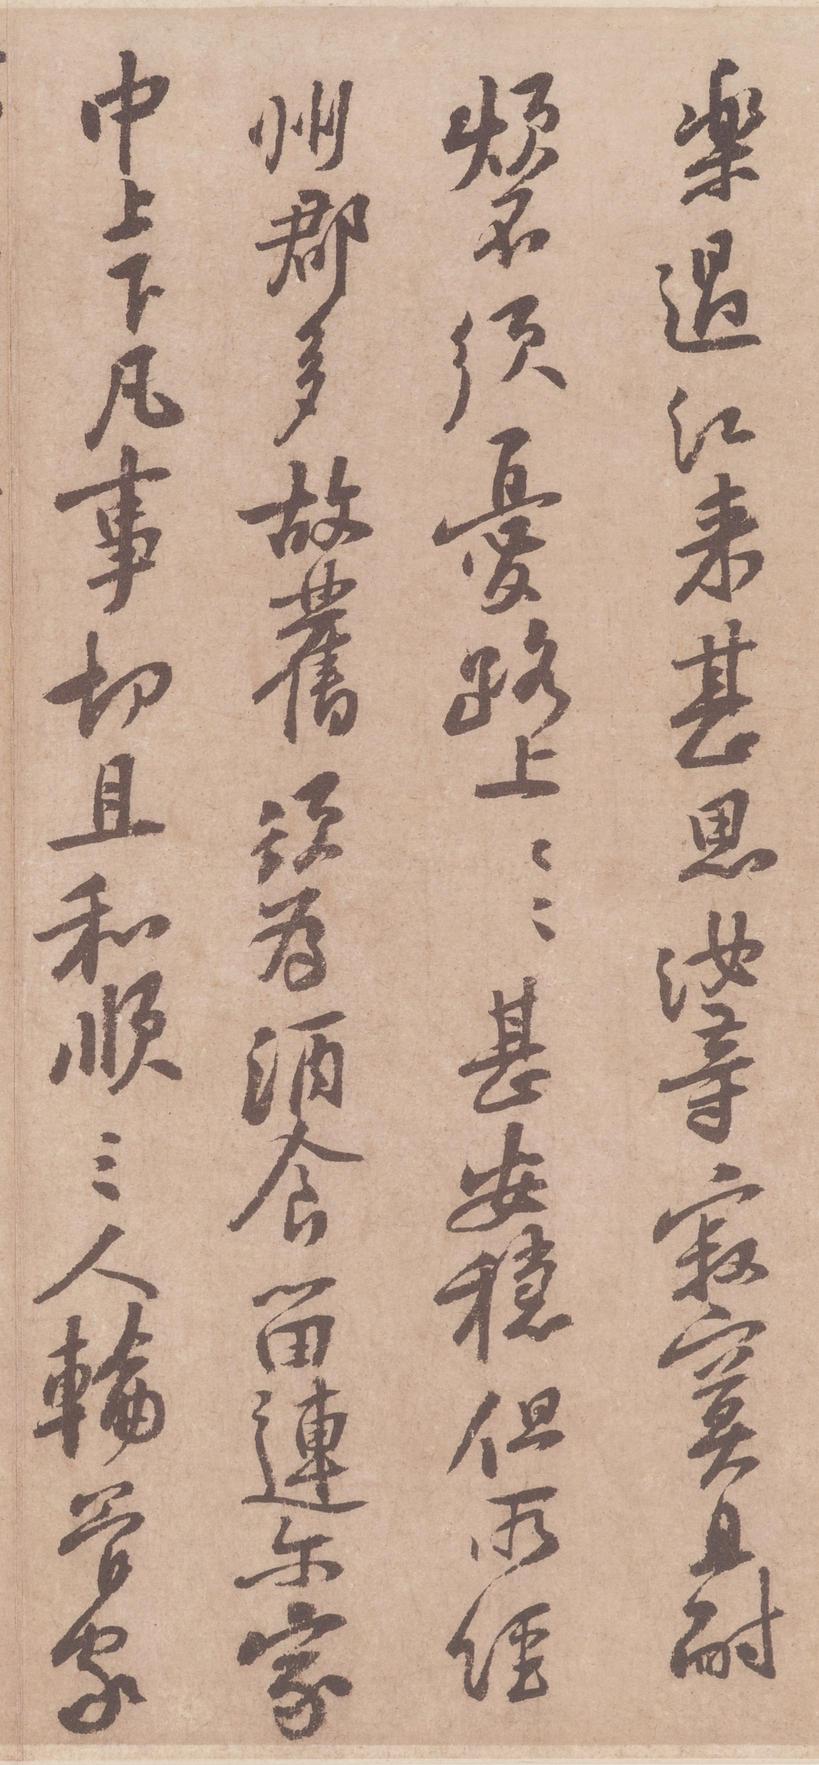 樂過江來甚思汝等寂寞且耐
煩不須憂路上〻〻甚安穩但所經
州郡多故舊須爲酒食留連尔家
中上下凡事切且和順三人輪管家